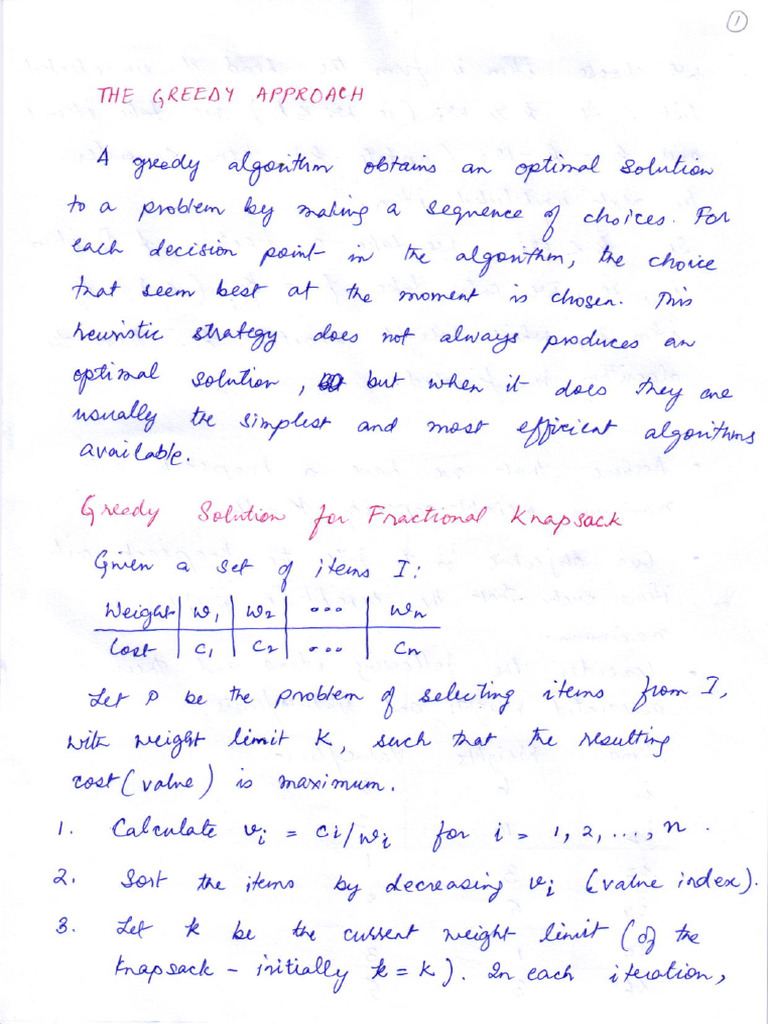 1
THE GREEDY APPROACH
A greedy algorithm obtains an optimal solution
to a problem by making a sequence of choices. For
each decision point in the algorithm, the choice
that seem best at the moment is chosen. This
heuristic strategy does not always produces an
optimal solution, but when it does they are
usually the simplest and most efficient algorithms
available.
Greedy Solution for Fractional Knapsack
Given a set of items I:
Weight | w1 | w2 | ... | wn
Cost | c1 | c2 | ... | cn
Let P be the problem of selecting items from I,
with weight limit K, such that the resulting
cost (value) is maximum.
1. Calculate vi = ci/wi for i = 1, 2, ..., n.
2. Sort the items by decreasing vi (value index).
3. Let k be the current weight limit (of the
knapsack - initially k = K). In each iteration,